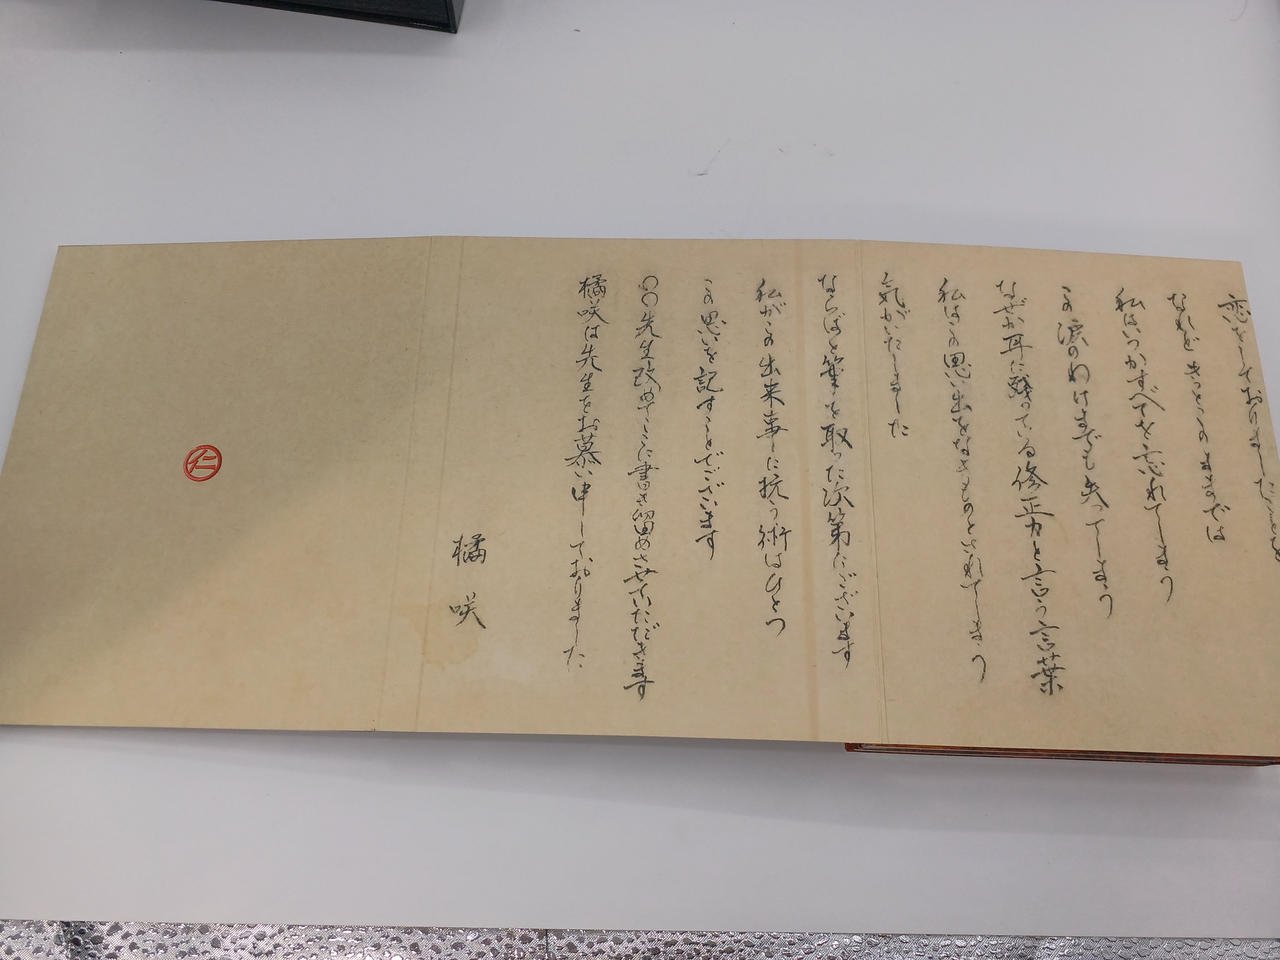 恋をしておりました
なれどきっとこのままでは
私はいつかすべてを忘れてしまう
この涙のわけまでも失ってしまう
なぜか耳に残っている修正力と言う言葉
私はこの思い出をなきものとされてしまう
気がいたしました
ならばと筆を取った次第にございます
私がこの出来事に抗う術はひとつ
この思いを記すことでございます
〇〇先生改めてここに書き留めさせていただきます
橘咲は先生をお慕い申しておりました
橘咲
仁